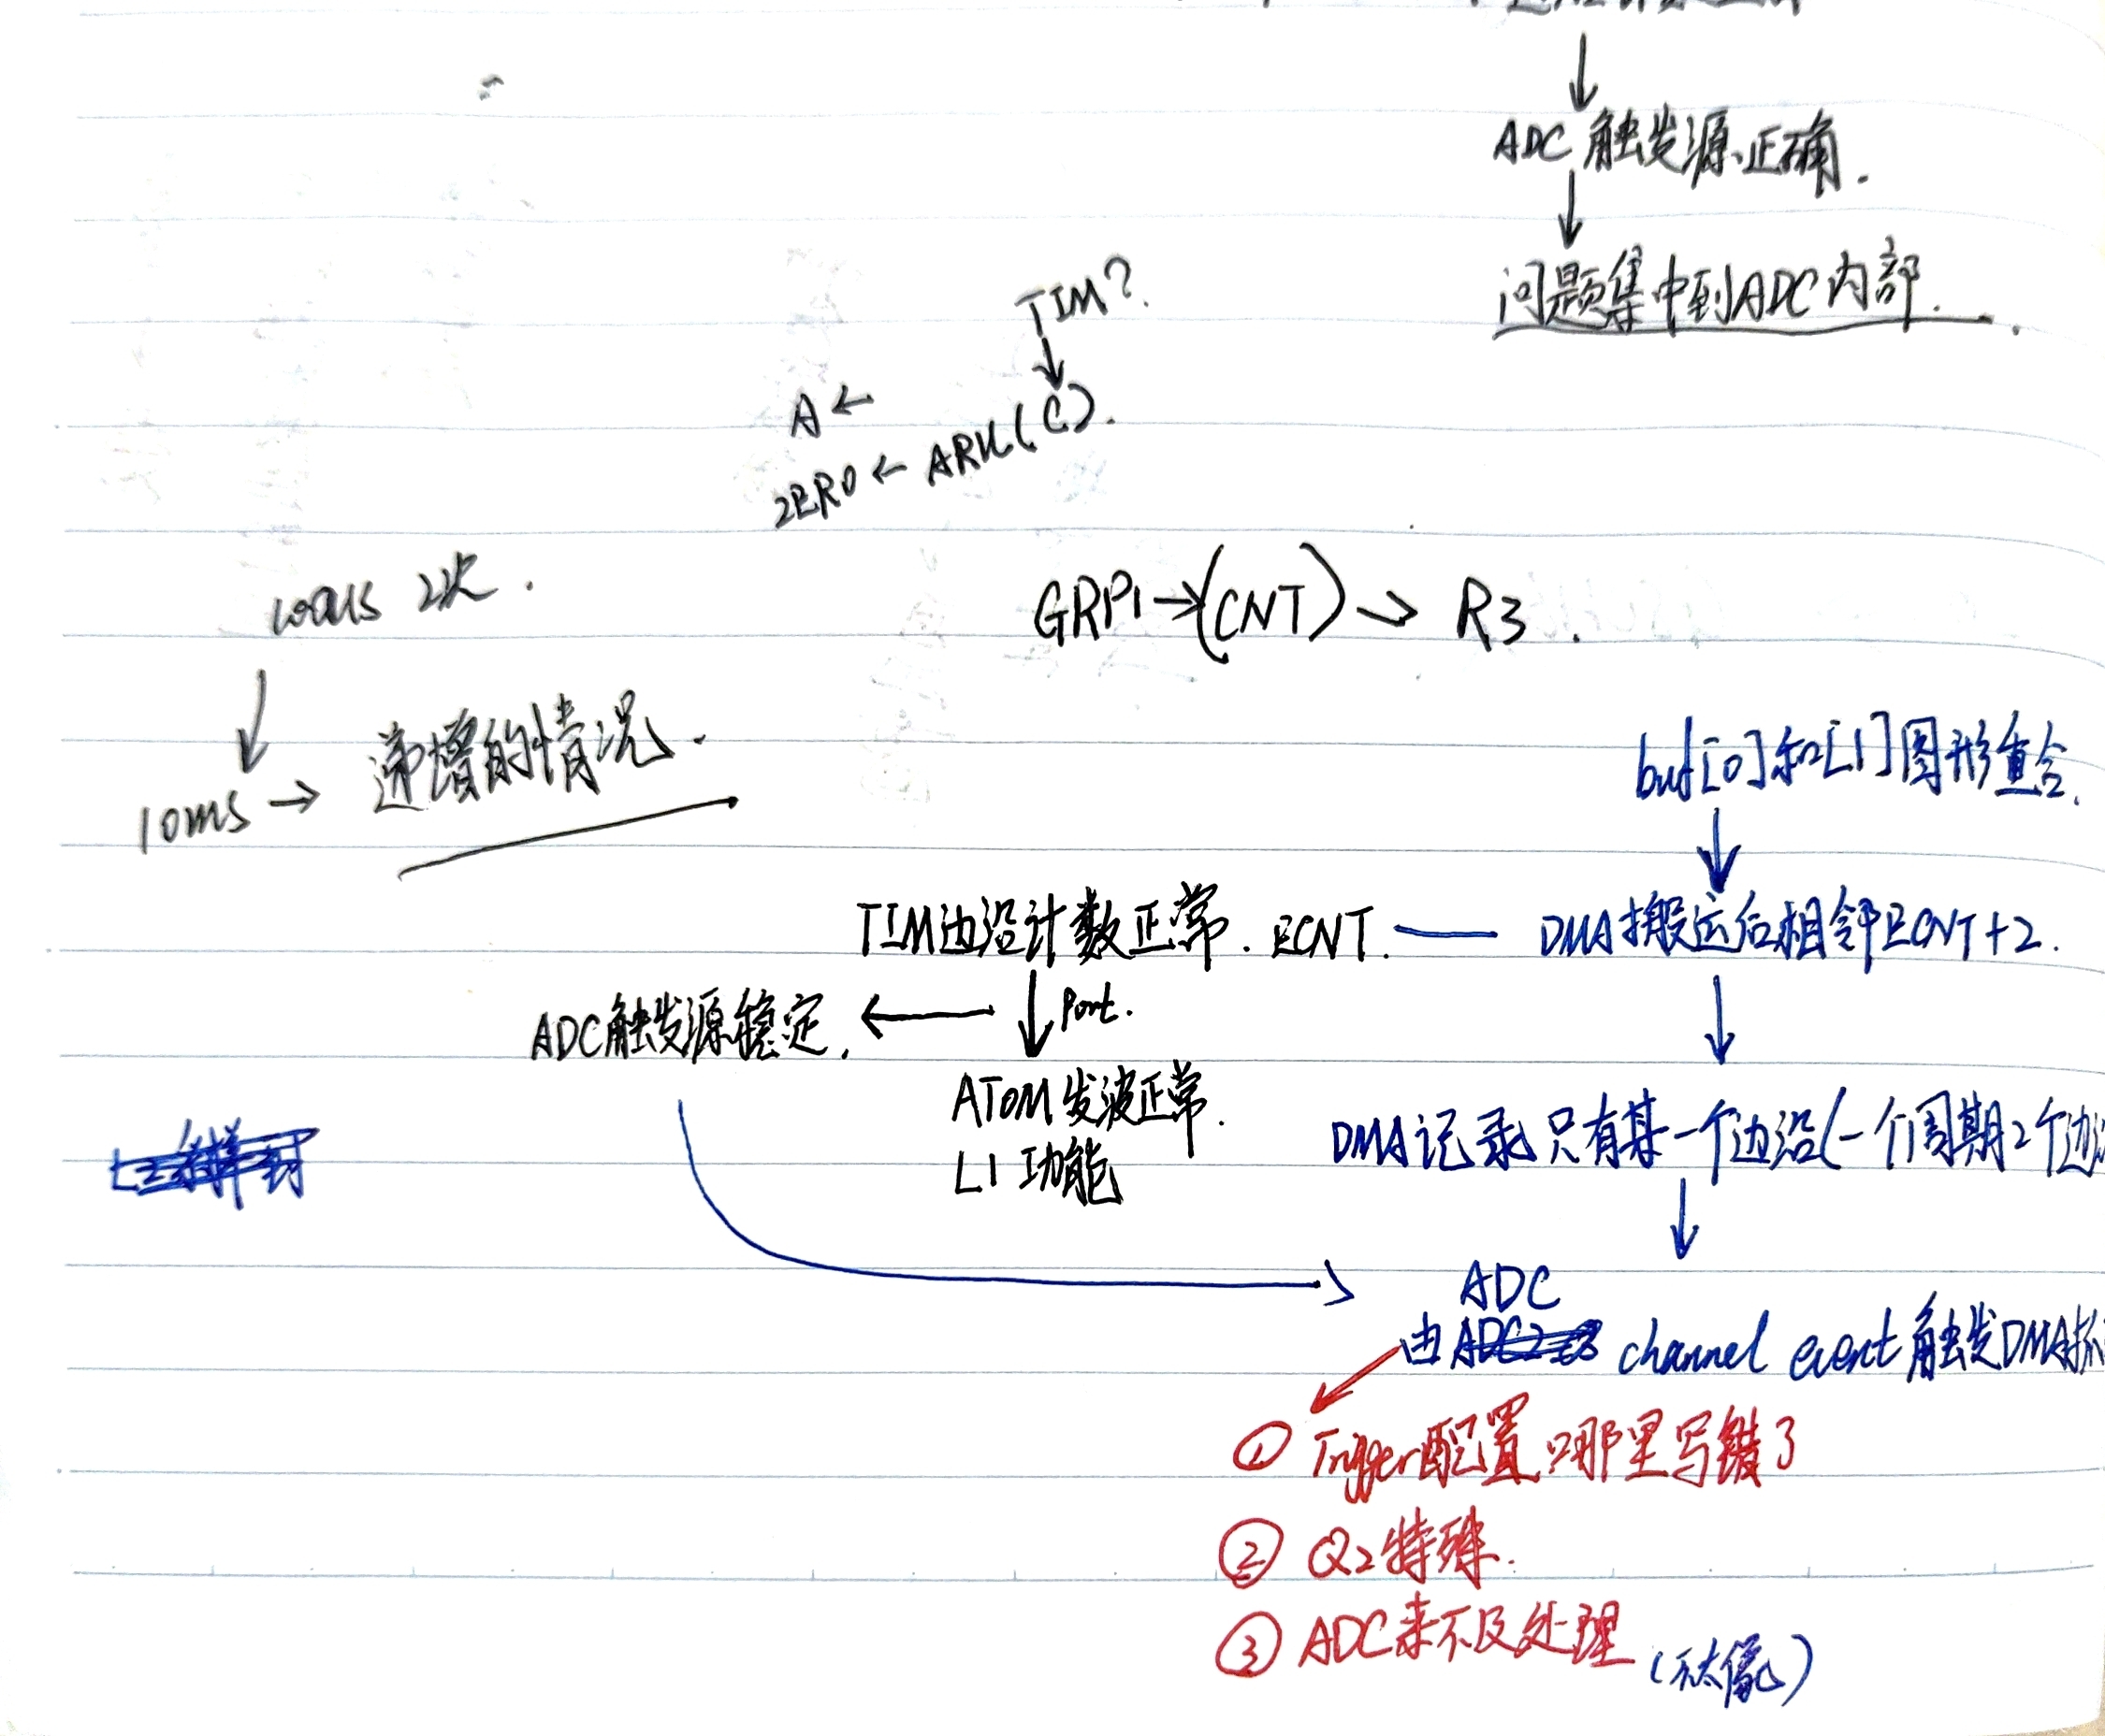 ↓
ADC 触发源正确.
↓
问题集中到ADC内部.
TIM?
↓
A ←
ZERO ← ARU(C).
100us 2次.
GRP1→(CNT)→ R3.
↓
10ms → 递增的情况.
buf[0]和[1]图形重合.
↓
TIM边沿计数正常. ECNT. — DMA搬运后相邻ECNT+2.
ADC触发源稳定. ← ↓Port. ↓
ATOM发波正常.
L1功能
DMA记录只有某一个边沿(一个周期2个边
↓
ADC
由 channel event触发DMA
① Trigger配置哪里写错了
② Q2特殊.
③ ADC来不及处理 (不太像)